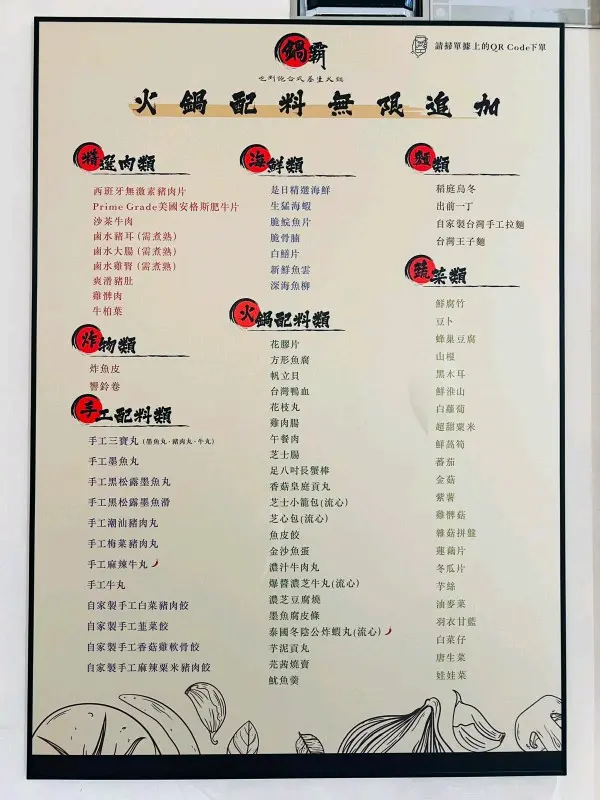 鍋霸
請掃單據上的QR Code下單
火鍋配料無限追加
精選肉類
西班牙無激素豬肉片
Prime Grade美國安格斯肥牛片
沙茶牛肉
鹵水豬耳(需煮熟)
鹵水大腸(需煮熟)
鹵水雞腎(需煮熟)
爽滑豬肚
雞髀肉
牛柏葉
炸物類
炸魚皮
響鈴卷
手工配料類
手工三寶丸(墨魚丸·豬肉丸·牛丸)
手工墨魚丸
手工黑松露墨魚丸
手工黑松露墨魚滑
手工潮汕豬肉丸
手工梅菜豬肉丸
手工麻辣牛丸
手工牛丸
自家製手工白菜豬肉餃
自家製手工韮菜餃
自家製手工香菇雞軟骨餃
自家製手工麻辣粟米豬肉餃
海鮮類
是日精選海鮮
生猛海蝦
脆鯇魚片
脆骨腩
白鱔片
新鮮魚雲
深海魚柳
火鍋配料類
花膠片
方形魚腐
帆立貝
台灣鴨血
花枝丸
雞肉腸
午餐肉
芝士腸
足八吋長蟹棒
香菇皇庭貢丸
芝士小籠包(流心)
芝心包(流心)
魚皮餃
金沙魚蛋
濃汁牛肉丸
爆醬濃芝牛丸(流心)
濃芝豆腐燒
墨魚腐皮條
泰國冬陰公炸蝦丸(流心)
芋泥貢丸
芫茜燒賣
魷魚羹
麵類
稻庭烏冬
出前一丁
自家製台灣手工拉麵
台灣王子麵
蔬菜類
鮮腐竹
豆卜
蜂巢豆腐
山根
黑木耳
鮮淮山
白蘿蔔
超甜粟米
鮮萵筍
蕃茄
金菇
紫薯
雞髀菇
雜菇拼盤
蓮藕片
冬瓜片
芋絲
油麥菜
羽衣甘藍
白菜仔
唐生菜
娃娃菜